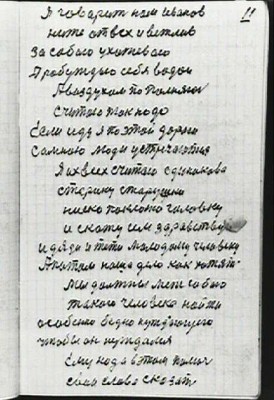 11
Я говарит нам иванов
нете от всех и
За собаго ухожеваго
Пробуждаю себя водой
А воздухом пополняю
Считаю так надо
Если иду я по этой дороги
Са мною люди устречаютца
Я их всех считаю одинаково
старику старушки
ниско паклоню галовку
и скажу им здравствуй
и дяди и тёти молодому человеку
А патом наше дело как хотят
Мы должны меж собою
такого человека найти
особено бедно нуждоющего
чтобы он нуждался
Ему нада в этом помоч
сваи слова сказат